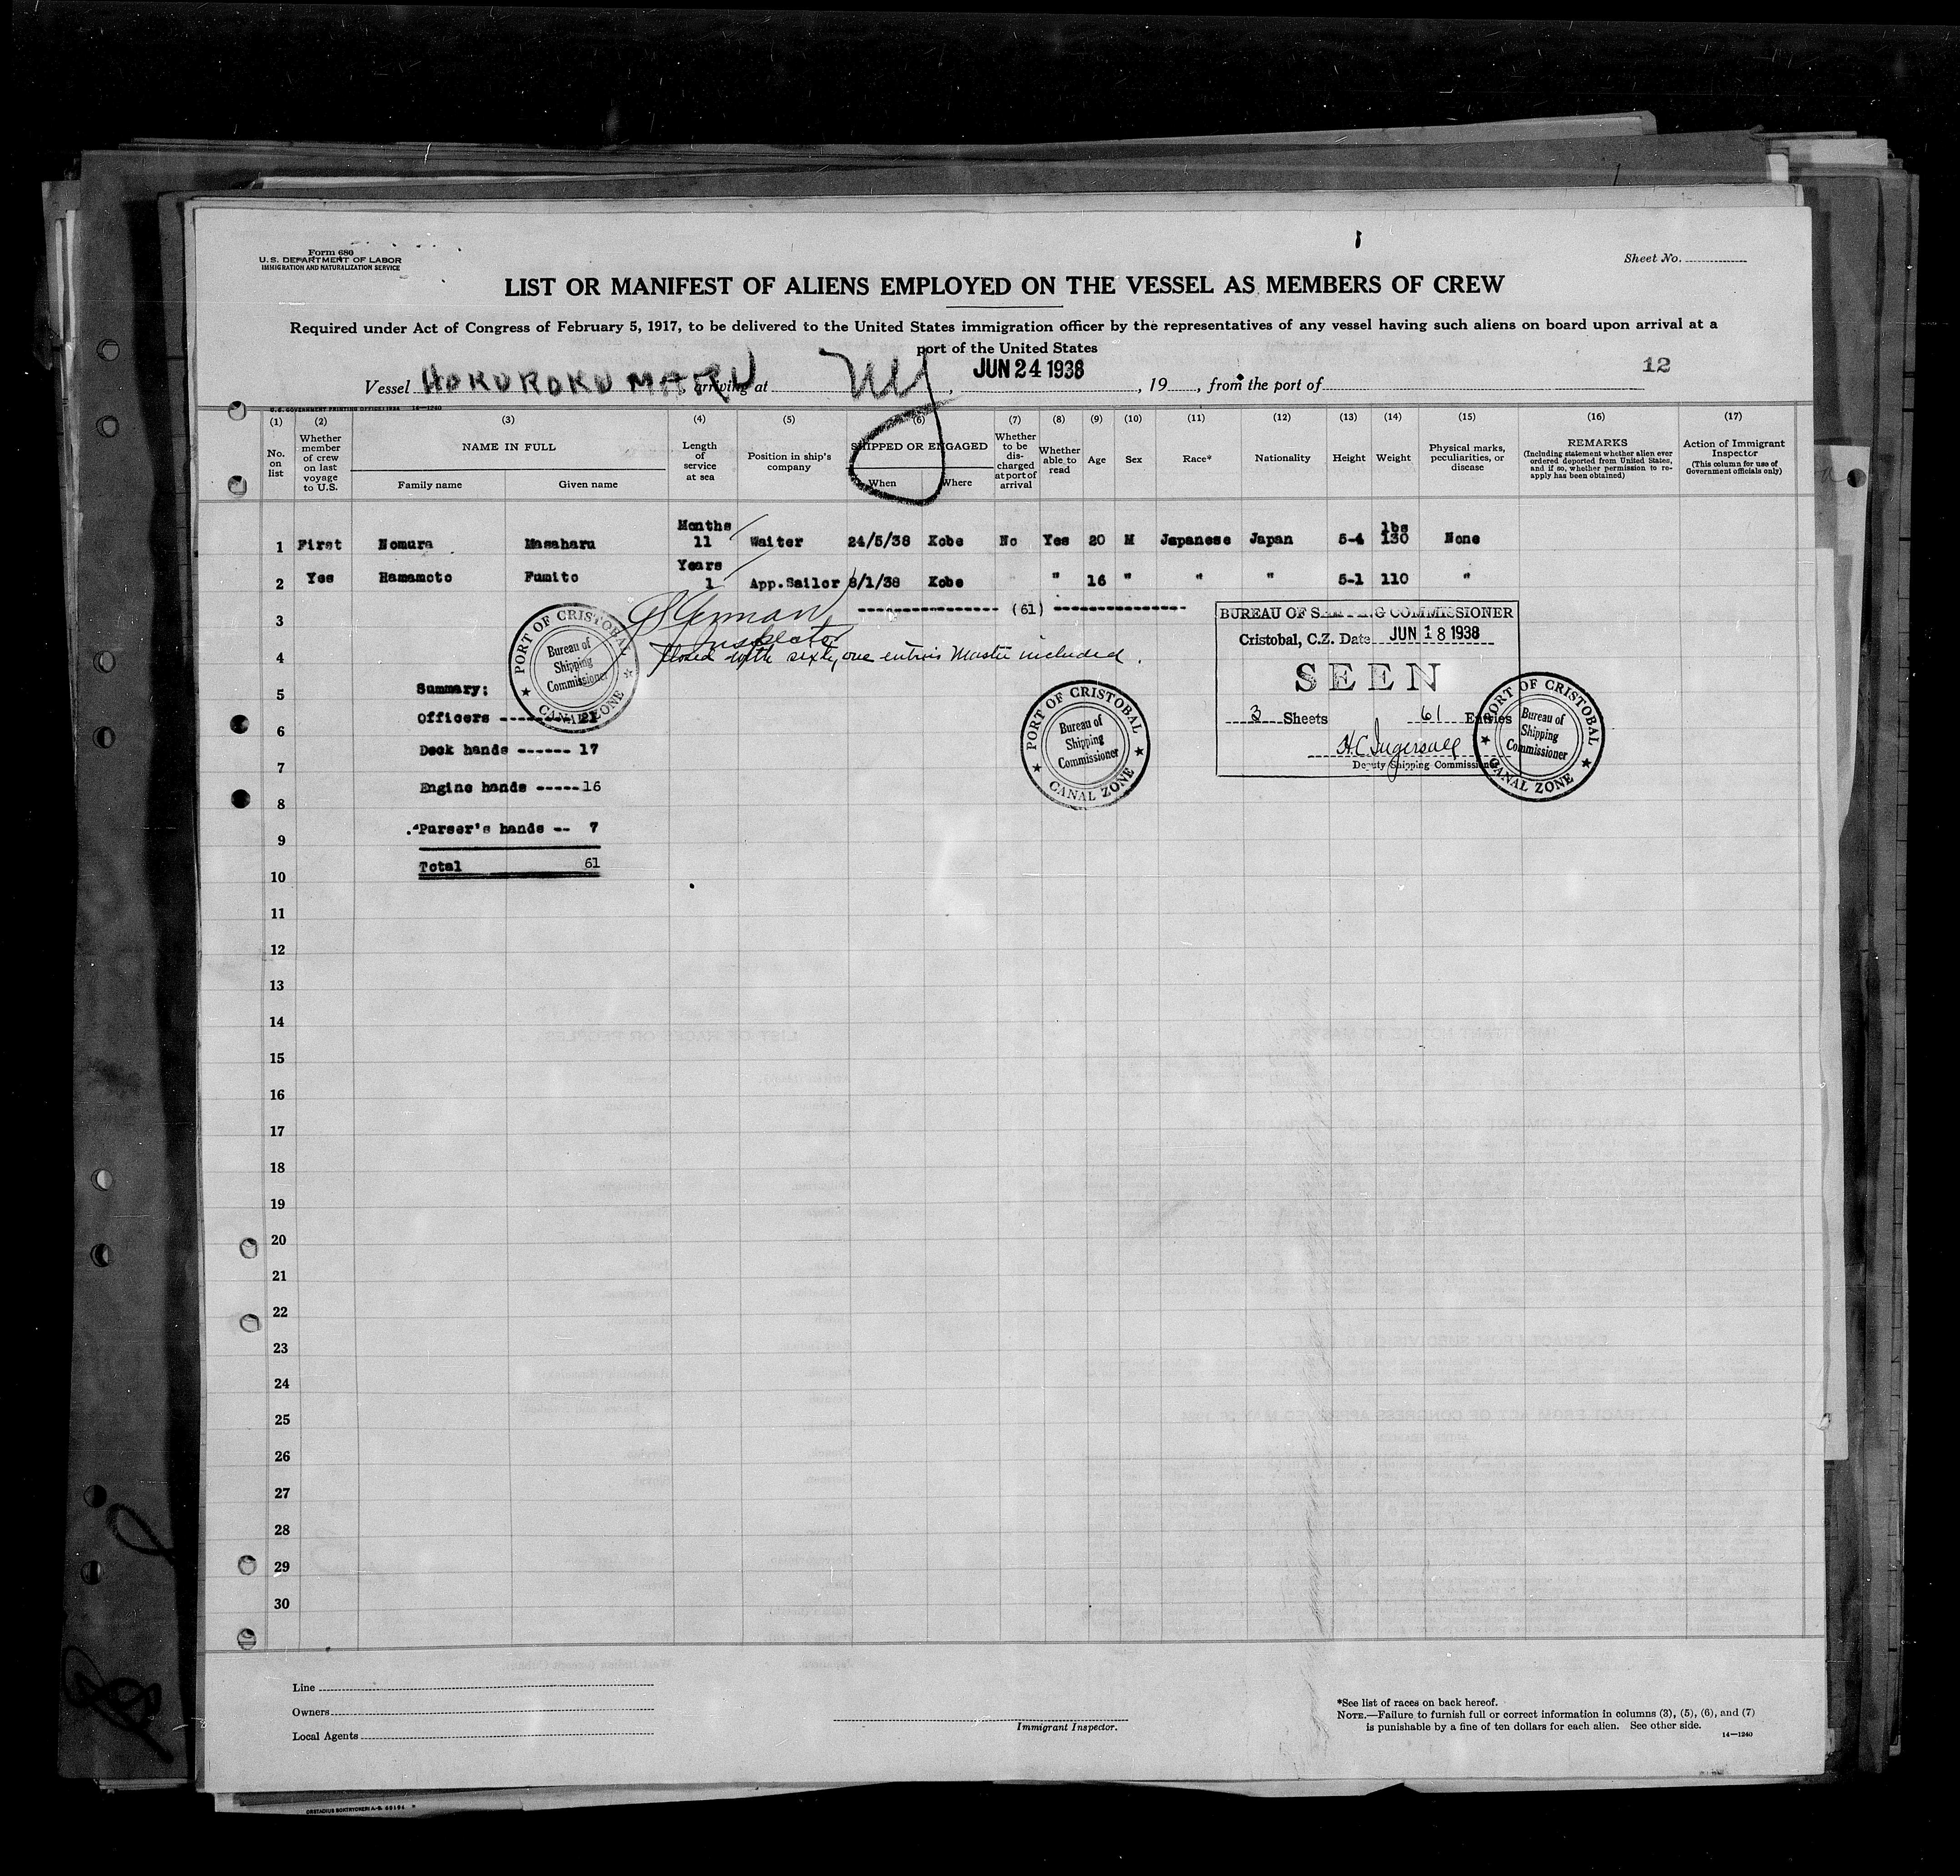 Form 680
U. S. DEPARTMENT OF LABOR
IMMIGRATION AND NATURALIZATION SERVICE
Sheet No.
LIST OR MANIFEST OF ALIENS EMPLOYED ON THE VESSEL AS MEMBERS OF CREW
Required under Act of Congress of February 5, 1917, to be delivered to the United States immigration officer by the representatives of any vessel having such aliens on board upon arrival at a
port of the United States
12
Vessel HOKUROKU MARU arriving at NY, JUN 24 1938, 19, from the port of
U. S. GOVERNMENT PRINTING OFFICE: 1934 14—1240
(1) (2) (3) (4) (5) (6) (7) (8) (9) (10) (11) (12) (13) (14) (15) (16) (17)
No. on list
Whether member of crew on last voyage to U.S.
NAME IN FULL
Family name Given name
Length of service at sea
Position in ship's company
SHIPPED OR ENGAGED
When Where
Whether to be discharged at port of arrival
Whether able to read
Age
Sex
Race*
Nationality
Height
Weight
Physical marks, peculiarities, or disease
REMARKS
(Including statement whether alien ever ordered deported from United States, and if so, whether permission to reapply has been obtained)
Action of Immigrant Inspector
(This column for use of Government officials only)
Months lbs
1 First Nomura Masaharu 11 Waiter 24/5/38 Kobe No Yes 20 M Japanese Japan 5-4 130 None
Years
2 Yes Hamamoto Fumito 1 App.Sailor 8/1/38 Kobe " 16 " " " 5-1 110 "
3 (61)
Inspector
4 Closed with sixty, one entries Master included.
PORT OF CRISTOBAL
Bureau of
Shipping
Commissioner
CANAL ZONE
BUREAU OF SHIPPING COMMISSIONER
Cristobal, C.Z. Date JUN 18 1938
SEEN
3 Sheets 61 Entries
H.C. Ingersoll
Deputy Shipping Commissioner
PORT OF CRISTOBAL
Bureau of
Shipping
Commissioner
CANAL ZONE
PORT OF CRISTOBAL
Bureau of
Shipping
Commissioner
CANAL ZONE
5 Summary:
6 Officers ---------- 21
7 Deck hands ------ 17
8 Engine hands -----16
9 Purser's hands -- 7
10 Total 61
11
12
13
14
15
16
17
18
19
20
21
22
23
24
25
26
27
28
29
30
Line
Owners
Local Agents
Immigrant Inspector.
*See list of races on back hereof.
NOTE.—Failure to furnish full or correct information in columns (3), (5), (6), and (7)
is punishable by a fine of ten dollars for each alien. See other side.
14—1240